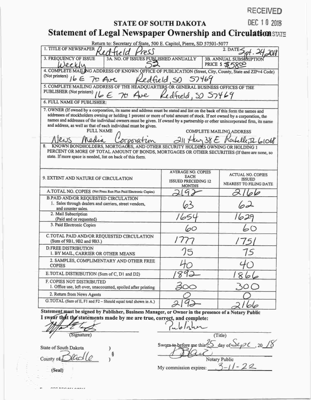 RECEIVED
DEC 18 2018
STATE OF SOUTH DAKOTA
Statement of Legal Newspaper Ownership and Circulation
Return to: Secretary of State, 500 E. Capitol, Pierre, SD 57501-5077
1. TITLE OF NEWSPAPER Redfield Press
2. DATE Sept. 24, 2018
3. FREQUENCY OF ISSUE Weekly
3A. NO. OF ISSUES PUBLISHED ANNUALLY 52
3B. ANNUAL SUBSCRIPTION PRICE $
4. COMPLETE MAILING ADDRESS OF KNOWN OFFICE OF PUBLICATION (Street, City, County, State and ZIP+4 Code)
(Not printers) 16 E 7th Ave Redfield SD 57469
5. COMPLETE MAILING ADDRESS OF THE HEADQUARTERS OR GENERAL BUSINESS OFFICES OF THE
PUBLISHER (Not printer) 16 E 7th Ave Redfield, SD 57469
6. FULL NAME OF PUBLISHER:
7. OWNER (If owned by a corporation, its name and address must be stated and list on the back of this form the names and
addresses of stockholders owning or holding 1 percent or more of total amount of stock. If not owned by a corporation, the
names and addresses of the individual owners must be given. If owned by a partnership or other unincorporated firm, its name
and address, as well as that of each individual must be given.
FULL NAME COMPLETE MAILING ADDRESS
News Media Corporation 211 Hwy 38 E Rochelle IL 61068
8. KNOWN BONDHOLDERS, MORTGAGEES, AND OTHER SECURITY HOLDERS OWNING OR HOLDING 1
PERCENT OR MORE OF TOTAL AMOUNT OF BONDS, MORTGAGES OR OTHER SECURITIES (If there are none, so
state. If more space is needed, list on back of this form.
9. EXTENT AND NATURE OF CIRCULATION
AVERAGE NO. COPIES EACH ISSUED PRECEDING 12 MONTHS
ACTUAL NO. COPIES ISSUED NEAREST TO FILING DATE
A. TOTAL NO. COPIES (Net Press Run Plus Paid Electronic Copies) 2192 2166
B. PAID AND/OR REQUESTED CIRCULATION
1. Sales through dealers and carriers, street vendors, and counter sales. 63 62
2. Mail Subscription (Paid and or requested) 1654 1629
3. Paid Electronic Copies 60 60
C. TOTAL PAID AND/OR REQUESTED CIRCULATION (Sum of 9B1, 9B2 and 9B3.) 1777 1751
D. FREE DISTRIBUTION
1. BY MAIL, CARRIER OR OTHER MEANS 75 75
2. SAMPLES, COMPLIMENTARY AND OTHER FREE COPIES 40 40
E. TOTAL DISTRIBUTION (Sum of C, D1 and D2) 1892 1866
F. COPIES NOT DISTRIBUTED
1. Office use, left over, unaccounted, spoiled after printing 300 300
2. Return from News Agents 0 0
G. TOTAL (Sum of E, F1 and F2 - Should equal total shown in A.) 2192 2166
Statement must be signed by Publisher, Business Manager, or Owner in the presence of a Notary Public
I swear that the statements made by me are true, correct, and complete:
Publisher
(Signature) (Title)
State of South Dakota
County of Beadle
Sworn to before me this 25 day of Sept 2018
Notary Public
(Seal)
My commission expires: 3-11-22